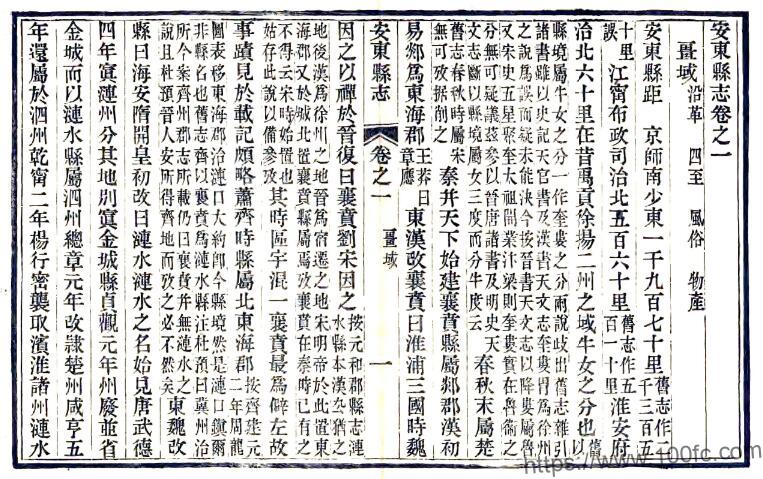 安東縣志卷之一
疆域 沿革 四至 風俗 物產
安東縣距 京師南少東一千九百七十里 舊志作二千三百五
十里誤 江甯布政司治北五百六十里 舊志作五百一十里 淮安府
治北六十里在昔禹貢徐揚二州之域牛女之分也 舊
縣境屬牛女之分一作奎婁之分兩說歧出舊志雜引
諸書雖以史記天官書及漢書天文志奎婁胃為徐州
之說為誤而疑未能決今按晉書天文志以降婁屬魯
又宋史五星聚奎太祖開業汴梁則奎婁實在魯衛之
分無可疑議茲參以晉唐諸書及明史天
文志斷以縣境屬女三度而分牛度云 春秋末屬楚
舊志春秋時屬宋
無可攷據削之 秦并天下始建襄賁縣屬郯郡漢初
易郯為東海郡 王莽曰章應 東漢改襄賁曰淮浦三國時魏
安東縣志 卷之一 疆域 一
因之以禪於晉復曰襄賁劉宋因之 按元和郡縣志漣水縣本漢厹猶之
地後漢為徐州之地晉為宿遷之地宋明帝於此置東
海郡又於城北置襄賁縣屬焉攷襄賁在泰時已有之
不得云宋時始置也
姑存此說以備參攷 其時區宇混一襄賁最為僻左故
事蹟見於載記頗略蕭齊時縣屬北東海郡 按齊建元二年周龍
圖表移東海郡治漣口大約卽今縣境然是漣口鎮爾
非縣名也舊志齊以襄賁為漣水縣注杜預曰冀州治
所今案齊州郡志所載仍曰襄賁并無漣水之
說且杜預晉人安所得齊地而攷之必不然矣 東魏改
縣曰海安隋開皇初改曰漣水漣水之名始見唐武德
四年寘漣州分其地別寘金城縣貞觀元年州廢並省
金城而以漣水縣屬泗州總章元年改隸楚州咸亨五
年還屬於泗州乾甯二年楊行密襲取濱淮諸州漣水
https://www.100fc.com